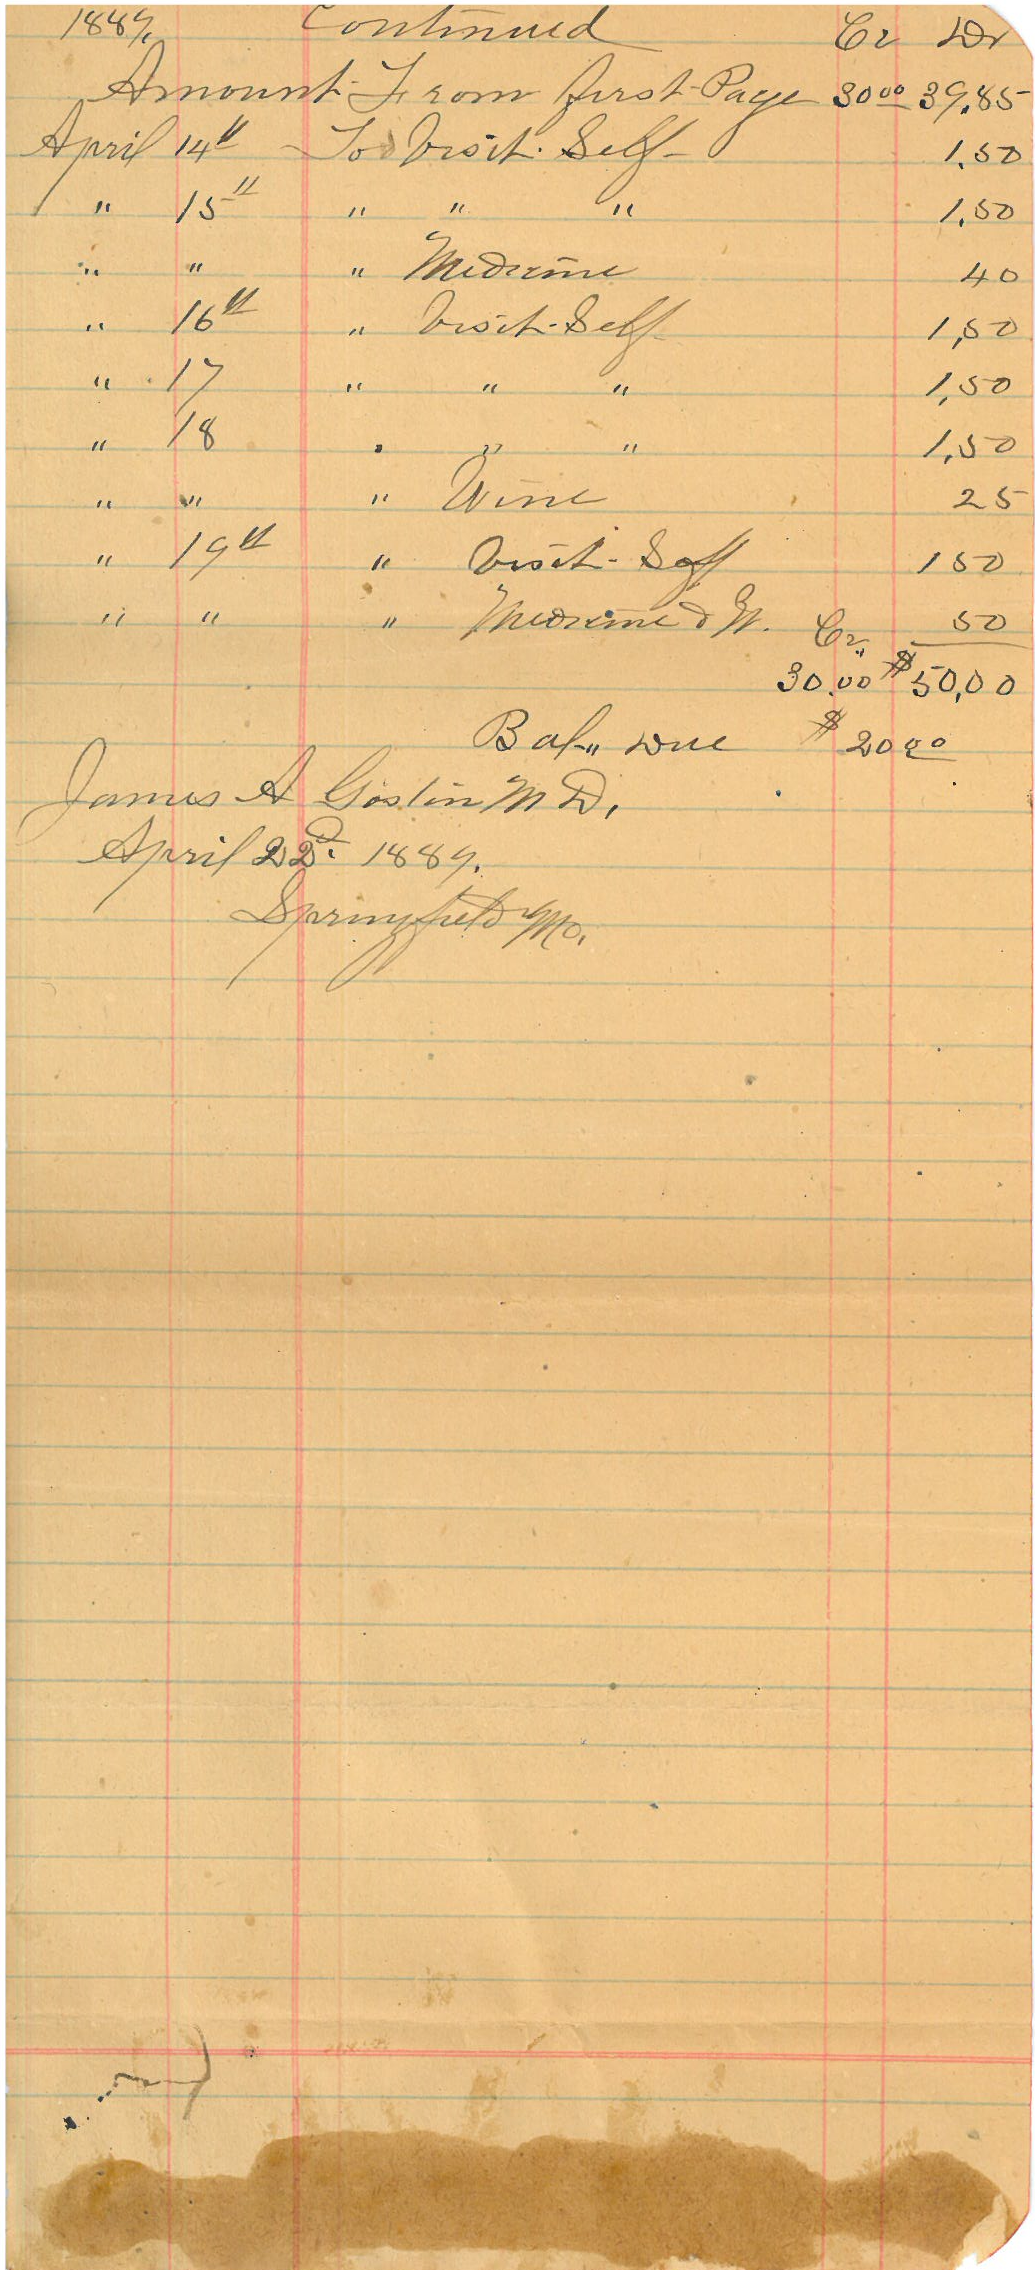 1889. Continued Cr Dr
Amount From first Page 30 00 39.85
April 14th To Visit Self 1.50
" 15th " " " 1.50
" " " Medicine 40
" 16th " Visit Self 1,50
" 17 " " " 1,50
" 18 " " " 1,50
" " " Wine 25
" 19th " Visit Self 1 50
" " " Medicine & W. 50
Cr.
30.00 $50,00
Bal,, Due $20 00
James A Gostin M D.
April 22d. 1889.
Springfield Mo.